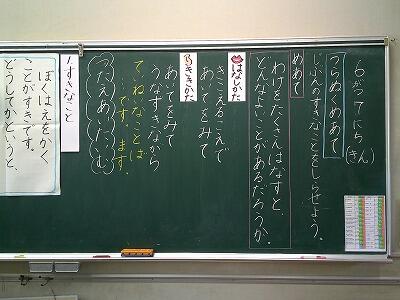 6がつ7にち
(きん)
つらぬくめあて
じぶんのすきなことをしらせよう。
めあて
わけをたくさんはなすと、
どんなよいことがあるだろうか。
はなしかた
きこえるこえで
あいてをみて
ききかた
あいてをみて
うなずきながら
ていねいなことば
…です。ます。
つたえあったいむ
すきなこと
ぼくはえをかく
ことがすきです。
どうしてかというと、